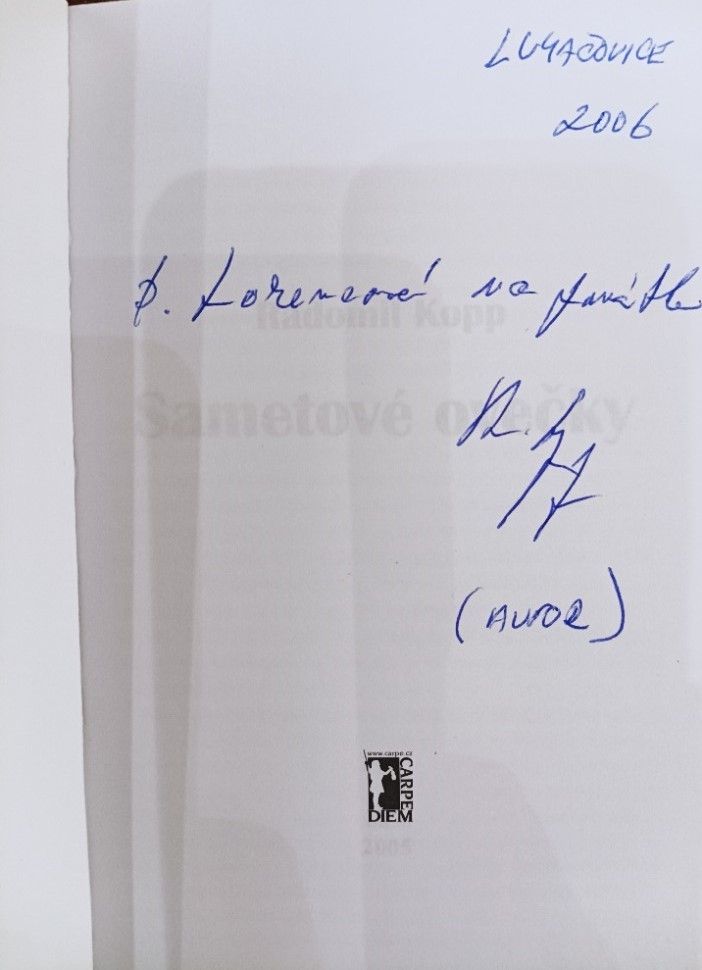 LUHAČOVICE
2006
p. Lorencové na památku
Radomil Kopp
Sametové ovečky
(AUTOR)
www.carpe.cz
CARPE
DIEM